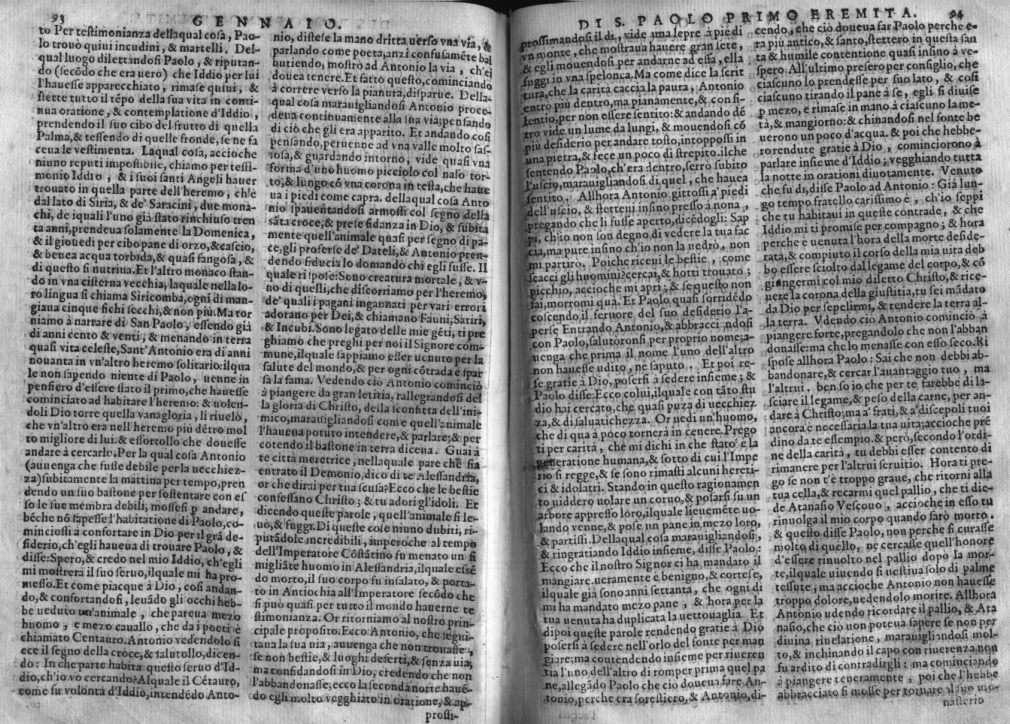 93 GENNAIO.
to Per testimonianza dellaqual cosa, Pao-
lo trouò quiui incudini, & martelli. Del-
qual luogo dilettandosi Paolo, & riputan-
do (secōdo che era uero) che Iddio per lui
l'hauesse apparecchiato, rimase quiui, &
stette tutto il tēpo della sua vita in conti-
nua oratione, & contemplatione d'Iddio,
prendendo il suo cibo del frutto di quella
Palma, & tessendo di quelle fronde, se ne fa
ceua le vestimenta. Laqual cosa, accioche
niuno reputi impossibile, chiamo per testi-
monio Iddio, & i suoi santi Angeli hauer
trouato in quella parte dell'heremo, ch'è
dal lato di Siria, & de' Saracini, due mona-
chi, de iquali l'uno già stato rinchiuso tren
ta anni, prendeua solamente la Domenica,
& il giouedi per cibo pane di orzo, & cascio,
& beuea acqua torbida, & quasi fangosa, &
di questo si nutriua. Et l'altro monaco stan-
do in vna cisterna vecchia, laquale nella lo-
ro lingua si chiama Siricomba, ogni dì man-
giaua cinque fichi secchi, & non più. Ma tor
niamo à narrare di San Paolo, essendo già
di anni cento & venti; & menando in terra
quasi vita celeste, Sant'Antonio era di anni
nouanta in vn'altro heremo solitario: ilqua
le non sapendo niente di Paolo, uenne in
pensiero d'essere stato il primo, che hauesse
cominciato ad habitare l'heremo: & uolen-
doli Dio torre quella vanagloria, li riuelò,
che vn'altro era nell'heremo più dētro mol
to migliore di lui. & essortollo che douesse
andare à cercarlo. Per la qual cosa Antonio
(auuenga che fusse debile per la uecchiez-
za) subitamente la mattina per tempo, pren
dendo un suo bastone per sostentare con es
so le sue membra debili, mossesi p andare,
bēche nō sapesse l'habitatione di Paolo, co-
minciossi à confortare in Dio per il grā de-
siderio, ch'egli haueua di trouare Paolo, &
disse: Spero, & credo nel mio Iddio, ch'egli
mi mostrerà il suo seruo, ilquale mi ha pro-
messo. Et come piacque à Dio, così andan-
do, & confortandosi, leuādo gli occhi heb-
be ueduto un'animale, che pareua mezo
huomo, e mezo cauallo, che da i poeti è
chiamato Centauro. Antonio vedendolo si
fece il segno della croce, & salutollo, dicen-
do: In che parte habita questo seruo d'Id-
dio, ch'io vo cercando? Alquale il Cētauro,
come fu volontà d'Iddio, intendēdo Anto-
nio, distese la mano dritta uerso vna via, &
parlando come poeta, anzi confusamēte bal
butiendo, mostrò ad Antonio la via, ch'ei
douea tenere. Et fatto questo, cominciando
à correre per la pianura, disparue. Della-
qual cosa marauigliandosi Antonio proce-
deua continuamente alla sua via; pensando
di ciò che gli era apparito. Et andando così
pensando, peruenne ad vna valle molto sas-
sosa, & guardando intorno, vide quasi vna
forma d'uno huomo picciolo col naso tor-
to, & lungo cō vna corona in testa, che haue
ua i piedi come capra. dellaqual cosa Anto
nio spauentandosi armossi col segno della
sāta croce, & prese fidanza in Dio, & subita
mente quell'animale quasi per segno di pa-
ce, gli proferse de' Dateli, & Antonio pren-
dendo fiducia lo domandò chi egli fusse. Il
quale rispose: Sono creatura mortale, & v-
no di quelli, che discorriamo per l'heremo,
de' quali i pagani ingannati per vari errori
adorano per Dei, & chiamano Fauni, Satiri,
& Incubi. Sono legato delle mie gēti, ti pre
ghiamo che preghi per noi il Signore com-
mune, ilquale sappiamo esser uenuto per la
salute del mondo, & per ogni cōtrada è spar
sa la fama. Vedendo ciò Antonio cominciò
à piangere da gran letitia, rallegrandosi del
la gloria di Christo, della sconfitta dell'ini-
mico, marauigliandosi come quell'animale
l'haueua potuto intendere, & parlare; & per
cotendo il bastone in terra diceua. Guai à
te città meretrice, nellaquale pare che sia
entrato il Demonio, dico di te Alessandria,
or che dirai per tua scusa? Ecco che le bestie
confessano Christo; & tu adori gl'idoli. Et
dicendo queste parole, quell'animale si le-
uò, & fuggì. Di queste cose niuno dubiti, ri-
putādole incredibili, imperoche al tempo
dell'Imperatore Cōstātino fu menato un si
migliāte huomo in Alessandria, ilquale essē
do morto, il suo corpo fu insalato, & porta-
to in Antiochia all'Imperatore secōdo che
si può quasi per tutto il mondo hauerne te
stimonianza. Or ritorniamo al nostro prin-
cipale proposito. Ecco Antonio, che segui-
tana la sua via, auuenga che non trouasse,
se non bestie, & luoghi deserti, & senza uia,
ma confidandosi in Dio, credendo che non
l'abbandonasse; ecco la secōda notte hauē-
do egli molto vegghiato in oratione, & ap-
prossi-
DI S. PAOLO PRIMO EREMITA. 94
prossimandosi il dì, vide una lepre à piè di
vn monte, che mostraua hauere gran sete,
& egli mouendosi per andarne ad essa, ella
fuggì in vna spelonca. Ma come dice la scrit
tura, che la carità caccia la paura, Antonio
entrò più dentro, ma pianamente, & con si-
lentio, per non essere sentito: & andando dē
tro vide un lume da lungi, & mouendosi cō
più desiderio per andare tosto, intoppossi in
una pietra, & fece un poco di strepito. ilche
sentendo Paolo, ch'era dentro, serrò subito
l'uscio, marauigliandosi di quel, che hauea
sentito. Allhora Antonio gittossi à piedi
dell'uscio, & stettesi insino presso à nona,
pregando che li fusse aperto, dicēdogli: Sap
pi, ch'io non son degno di vedere la tua fac
cia, ma pure insino ch'io non la uedrò, non
mi partirò. Poiche riceui le bestie, come
scacci gli huomini? cercai, & hotti trouato;
picchio, accioche mi apri; & se questo non
fai, morrommi quà. Et Paolo quasi sorridēdo
coscendo, il feruore del suo desiderio l'a-
perse. Entrando Antonio, & abbracciandosi
con Paolo, salutoronsi per proprio nome; a-
uenga che prima il nome l'uno dell'altro
non hauesse udito, ne saputo. Et poi re-
se gratie à Dio, posersi à sedere insieme; &
Paolo disse: Ecco colui, ilquale con tāto stu
dio hai cercato, che quasi puza di uecchiez
za, & di saluatichezza. Or uedi un'huomo,
che di quà à poco tornerà in cenere. Prego
ti per carità, che mi dichi in che stato è la
generatione humana, & sotto di cui l'Impe
rio si regge, & se sono rimasti alcuni hereti-
ci & idolatri. Stando in questo ragionamen
to uiddero uolare un coruo, & posarsi su un
arbore appresso loro, ilquale lieuemēte uo-
lando venne, & pose un pane in mezo loro,
& partissi. Dellaqual cosa marauigliandosi,
& ringratiando Iddio insieme, disse Paolo:
Ecco che il nostro Signor ci ha mandato il
mangiare. ueramente è benigno, & cortese,
ilquale già sono anni settanta, che ogni dì
mi ha mandato mezo pane, & hora per la
tua uenuta ha duplicata la uettouaglia. Et
dipoi queste parole rendendo gratie à Dio
posersi à sedere nell'orlo del fonte per man
giare; ma contendendo insieme per riueren
tia l'uno dell'altro di romper prima quel pa
ne, allegādo Paolo che ciò doueua fare An-
tonio, perche era forestiero, & Antonio, di-
cendo, che ciò doueua far Paolo perche e-
ra più antico, & santo, stettero in questa san
ta & humile contentione quasi insino à ve-
spero. All'ultimo presero per consiglio, che
ciascuno lo prendesse per suo lato, & così
ciascuno tirando il pane à se, egli si diuise
p mezo, e rimase in mano à ciascuno la me-
tà, & mangiorno: & chinandosi nel fonte be
uerono un poco d'acqua. & poi che hebbe-
ro rendute gratie à Dio, cominciorono à
parlare insieme d'Iddio; vegghiando tutta
la notte in orationi diuotamente. Venuto
che fu dì, disse Paolo ad Antonio: Già lun-
go tempo fratello carissimo è, ch'io seppi
che tu habitaui in queste contrade, & che
Iddio mi ti promise per compagno; & hora
perche è uenuta l'hora della morte deside-
rata, & compiuto il corso della mia uita deb
bo essere sciolto dal legame del corpo, & cō
giungermi col mio diletto Christo, & rice-
uere la corona della giustitia, tu sei mādato
da Dio per sepelirmi, & rendere la terra al-
la terra. Vdendo ciò Antonio cominciò à
piangere forte, pregandolo che non l'abban
donasse ma che lo menasse con esso seco. Ri
spose allhora Paolo: Sai che non debbi ab-
bandonare, & cercar l'auantaggio tuo, ma
l'altrui. ben so io che per te sarebbe di la-
sciare il legame, & peso della carne, per an-
dare à Christo; ma a' frati, & a' discepoli tuoi
ancora è necessaria la tua uita; accioche prē
dino da te essempio. & però, secondo l'ordi-
ne della carità, tu debbi esser contento di
rimanere per l'altrui seruitio. Hora ti pre-
go se non t'è troppo graue, che ritorni alla
tua cella, & recarmi quel pallio, che ti die-
de Atanasio Vescouo, accioche in esso tu
rinuolga il mio corpo quando sarò morto.
& questo disse Paolo, non perche si curasse
molto di quello, ne cercasse quell'honore
d'essere rinuolto nel pallio dopò la mor-
te, ilquale uiuendo si uestiua solo di palme
tessute, ma accioche Antonio non hauesse
troppo dolore, uedendolo morire. Allhora
Antonio udendo ricordare il pallio, & Ata
nasio, che ciò non poteua sapere se non per
diuina riuelatione, marauigliandosi mol-
to, & inchinando il capo con riuerenza non
fu ardito di contradirgli: ma cominciando
à piangere teneramente, poi che l'hebbe
abbracciato si mosse per tornare al suo mo-
nasterio